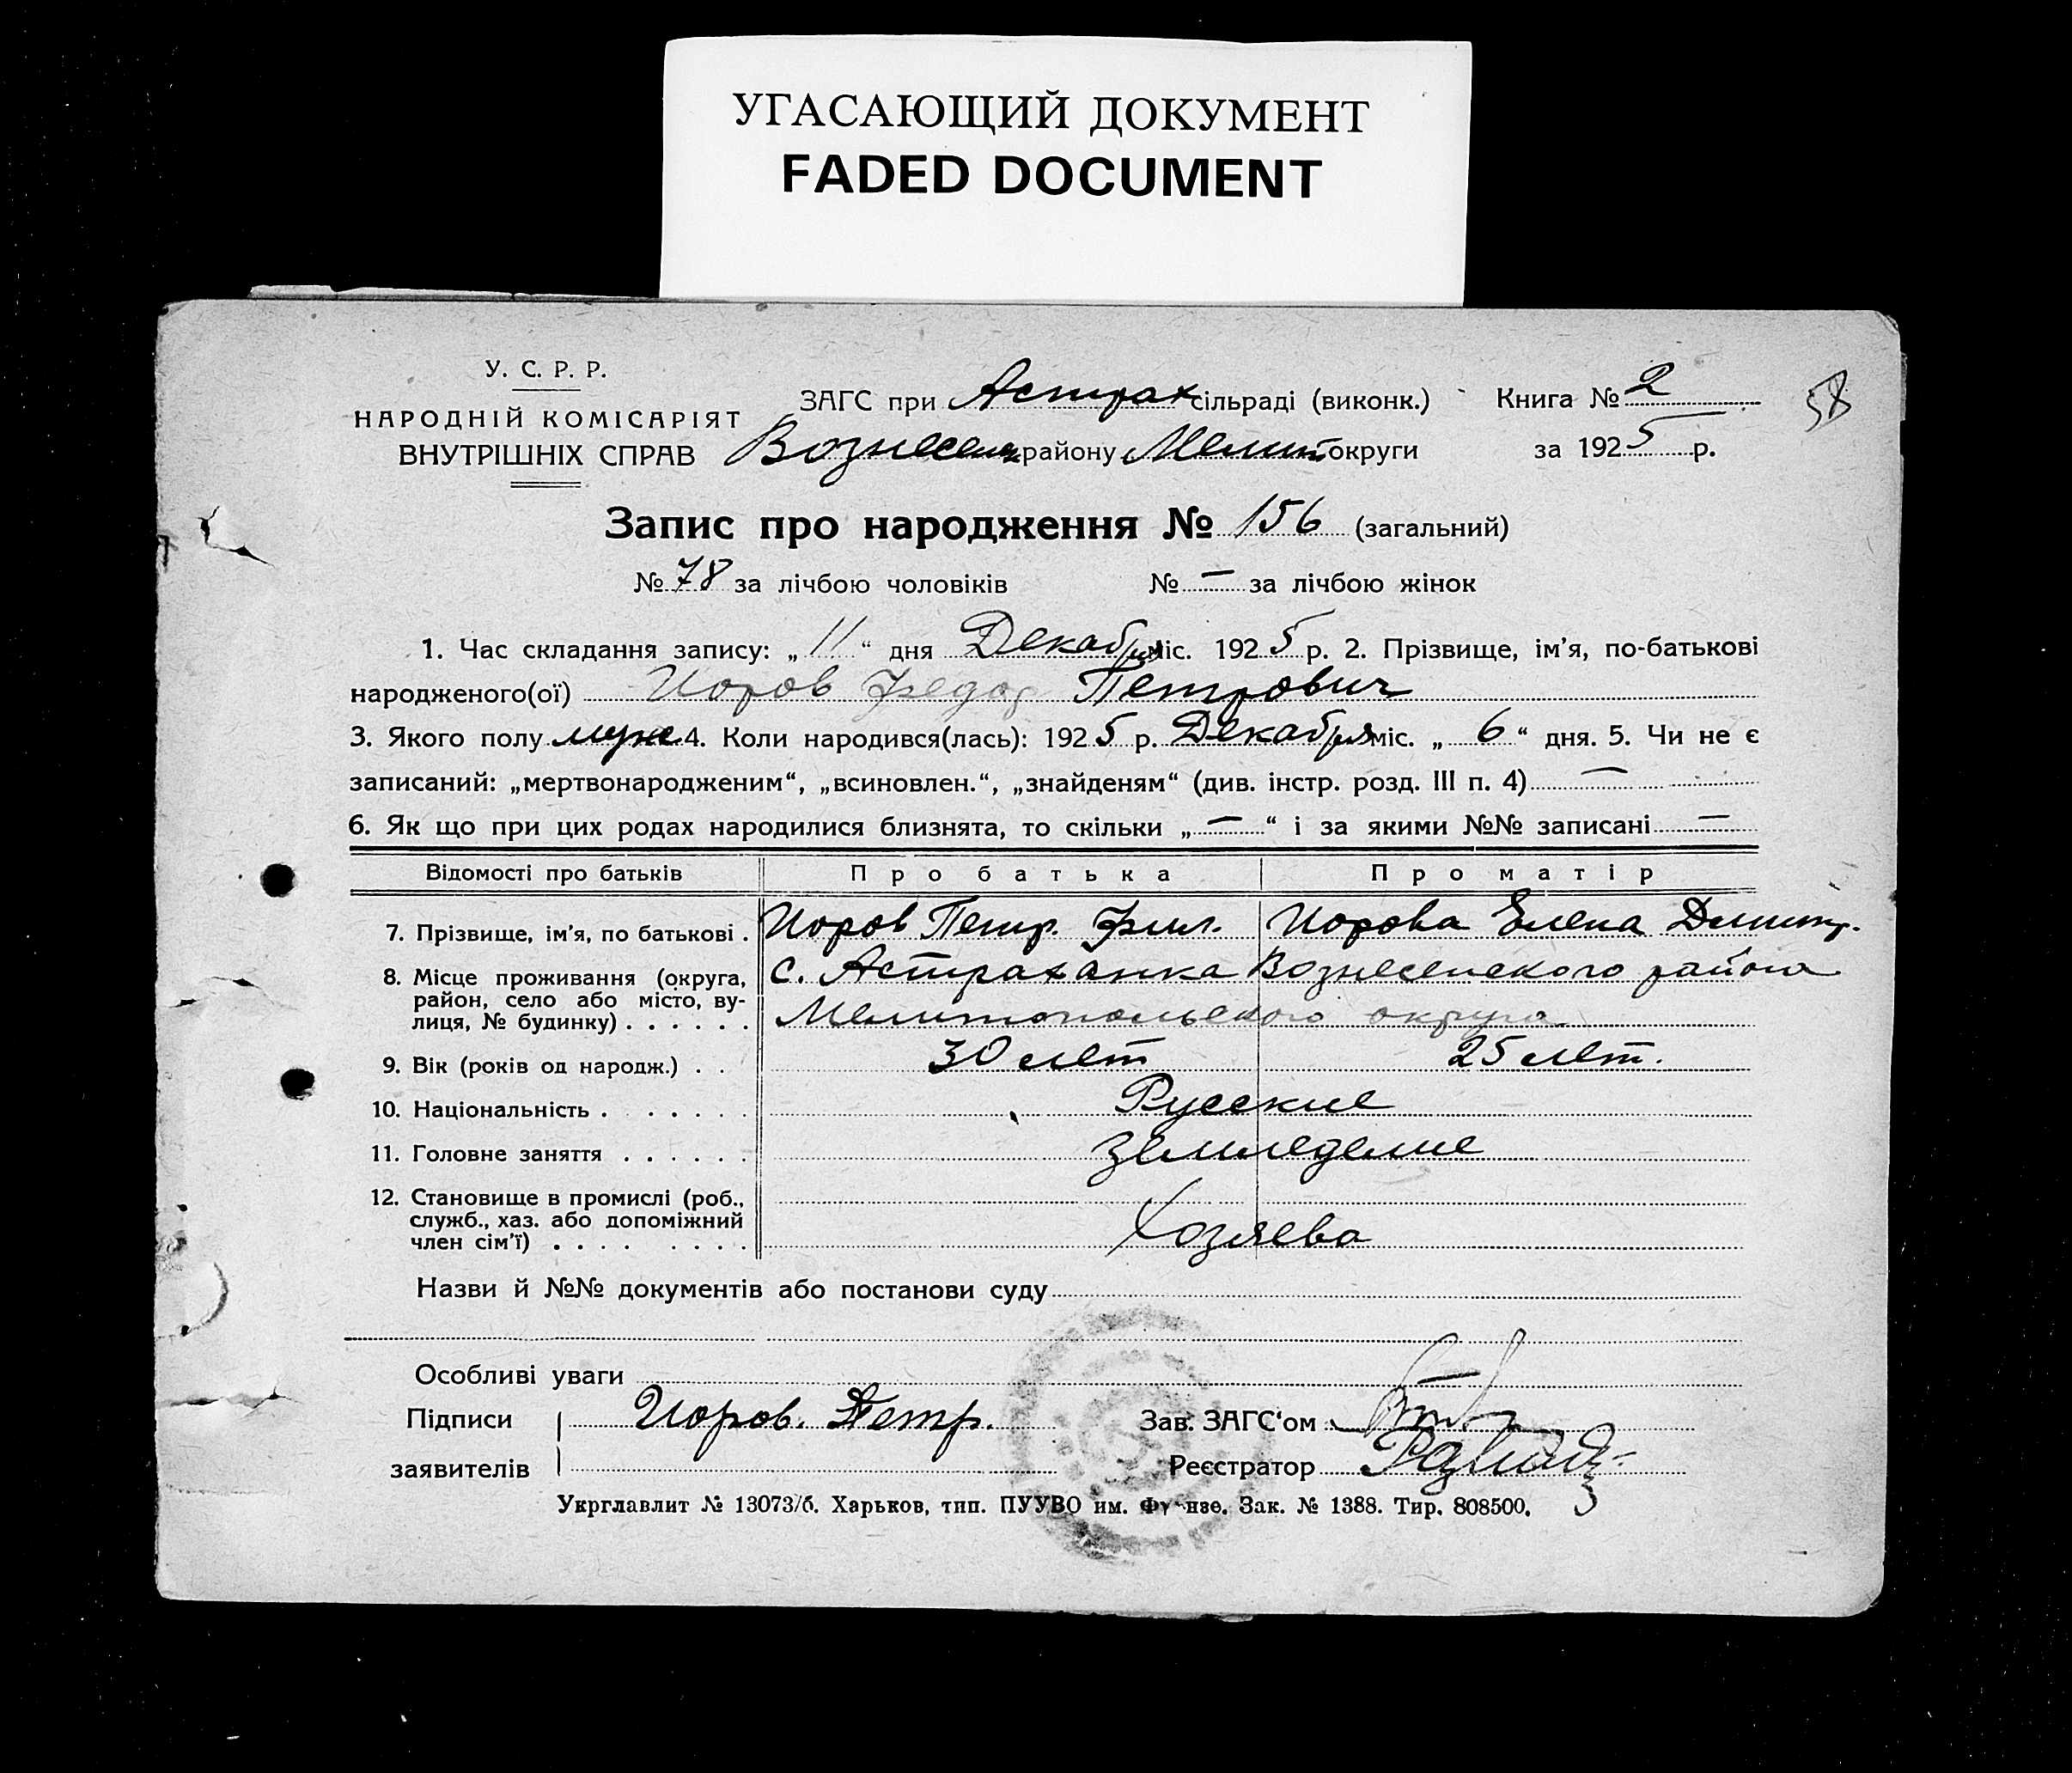 УГАСАЮЩИЙ ДОКУМЕНТ
FADED DOCUMENT
У. С. Р. Р.
НАРОДНІЙ КОМІСАРІЯТ
ВНУТРІШНІХ СПРАВ
ЗАГС при Астрах сільраді (виконк.)
Вознесенк району Мелит округи
Книга № 2
за 1925 р.
58
Запис про народження № 156 (загальний)
№ 78 за лічбою чоловіків № — за лічбою жінок
1. Час складання запису: „ 11 “ дня Декабря міс. 1925 р. 2. Прізвище, ім'я, по-батькові
народженого(ої) Иоров Федор Петрович
3. Якого полу муже 4. Коли народився(лась): 1925 р. Декабря міс. „ 6 “ дня. 5. Чи не є
записаний: „мертвонародженим“, „всиновлен.“, „знайденям“ (див. інстр. розд. III п. 4) —
6. Як що при цих родах народилися близнята, то скільки „ — “ і за якими №№ записані —
Відомості про батьків Про батька Про матір
7. Прізвище, ім'я, по батькові . Иоров Петр. Фил. Иорова Елена Дмитр.
8. Місце проживання (округа, с. Астраханка Вознесенского района
район, село або місто, ву-
лиця, № будинку) . . . . . . Мелитопольского округа
9. Вік (років од народж.) . . 30 лет 25 лет.
10. Національність . . . . . . . Русские
11. Головне заняття . . . . . . Земледелие
12. Становище в промислі (роб.,
служб., хаз. або допоміжний
член сім'ї) . . . . . . . . Хозяева
Назви й №№ документів або постанови суду
Особливі уваги
Підписи Иоров. Петр. Зав. ЗАГС'ом
заявителів Реєстратор
Укрглавлит № 13073/б. Харьков, тип. ПУУВО им. Фрунзе. Зак. № 1388. Тир. 808500.